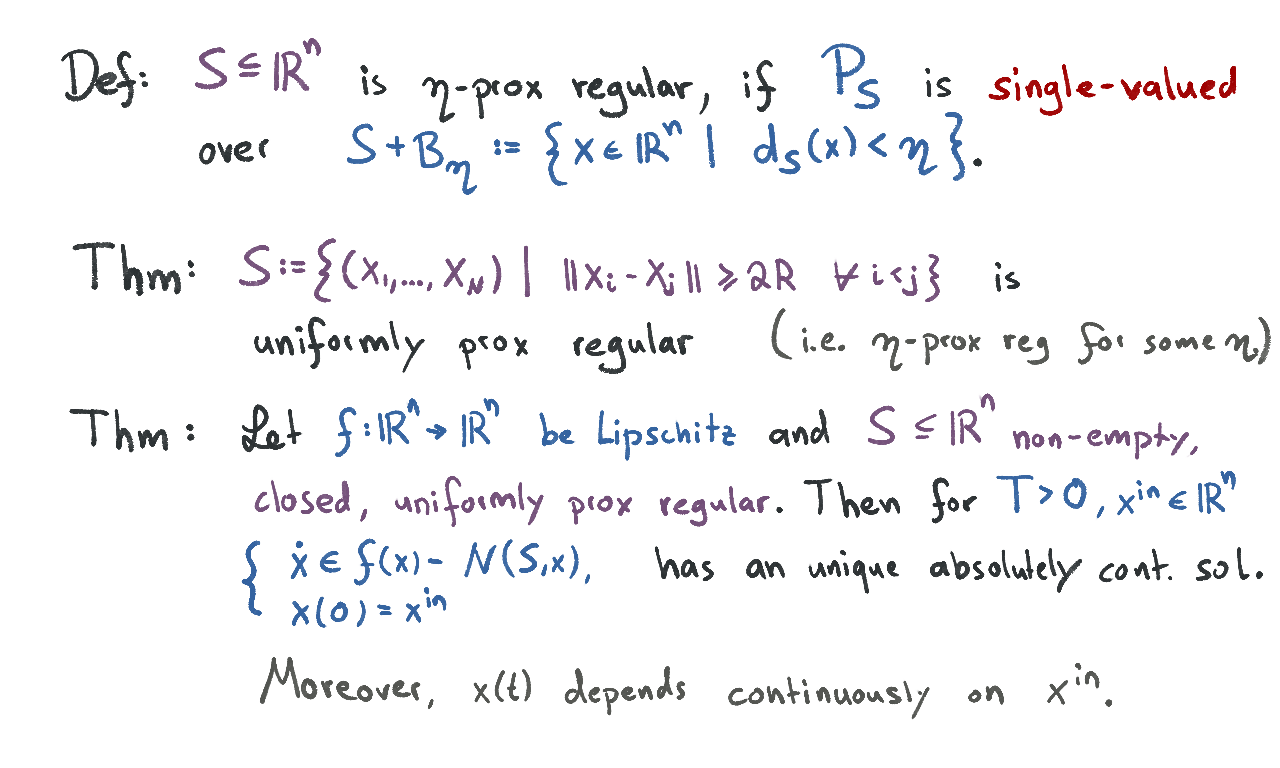 Def: S ⊆ ℝⁿ is η-prox regular, if P_S is single-valued
over S + B_η := {x ∈ ℝⁿ | d_S(x) < η}.
Thm: S := {(x₁,..., x_N) | ||x_i - x_j|| ⩾ 2R ∀ i<j} is
uniformly prox regular (i.e. η-prox reg for some η)
Thm: Let f: ℝⁿ → ℝⁿ be Lipschitz and S ⊆ ℝⁿ non-empty,
closed, uniformly prox regular. Then for T > 0, xⁱⁿ ∈ ℝⁿ
{ ẋ ∈ f(x) - N(S,x), has an unique absolutely cont. sol.
x(0) = xⁱⁿ
Moreover, x(t) depends continuously on xⁱⁿ.